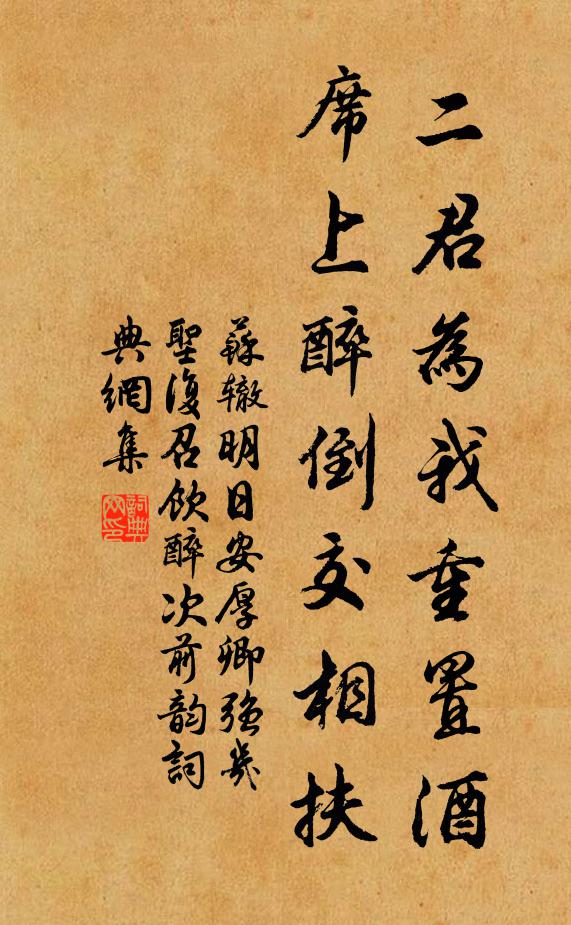 二君為我重置酒
席上醉倒交相扶
蘇辙明日安厚卿强幾
聖復召飲醉次前韵詞
典網集
詞典
网印